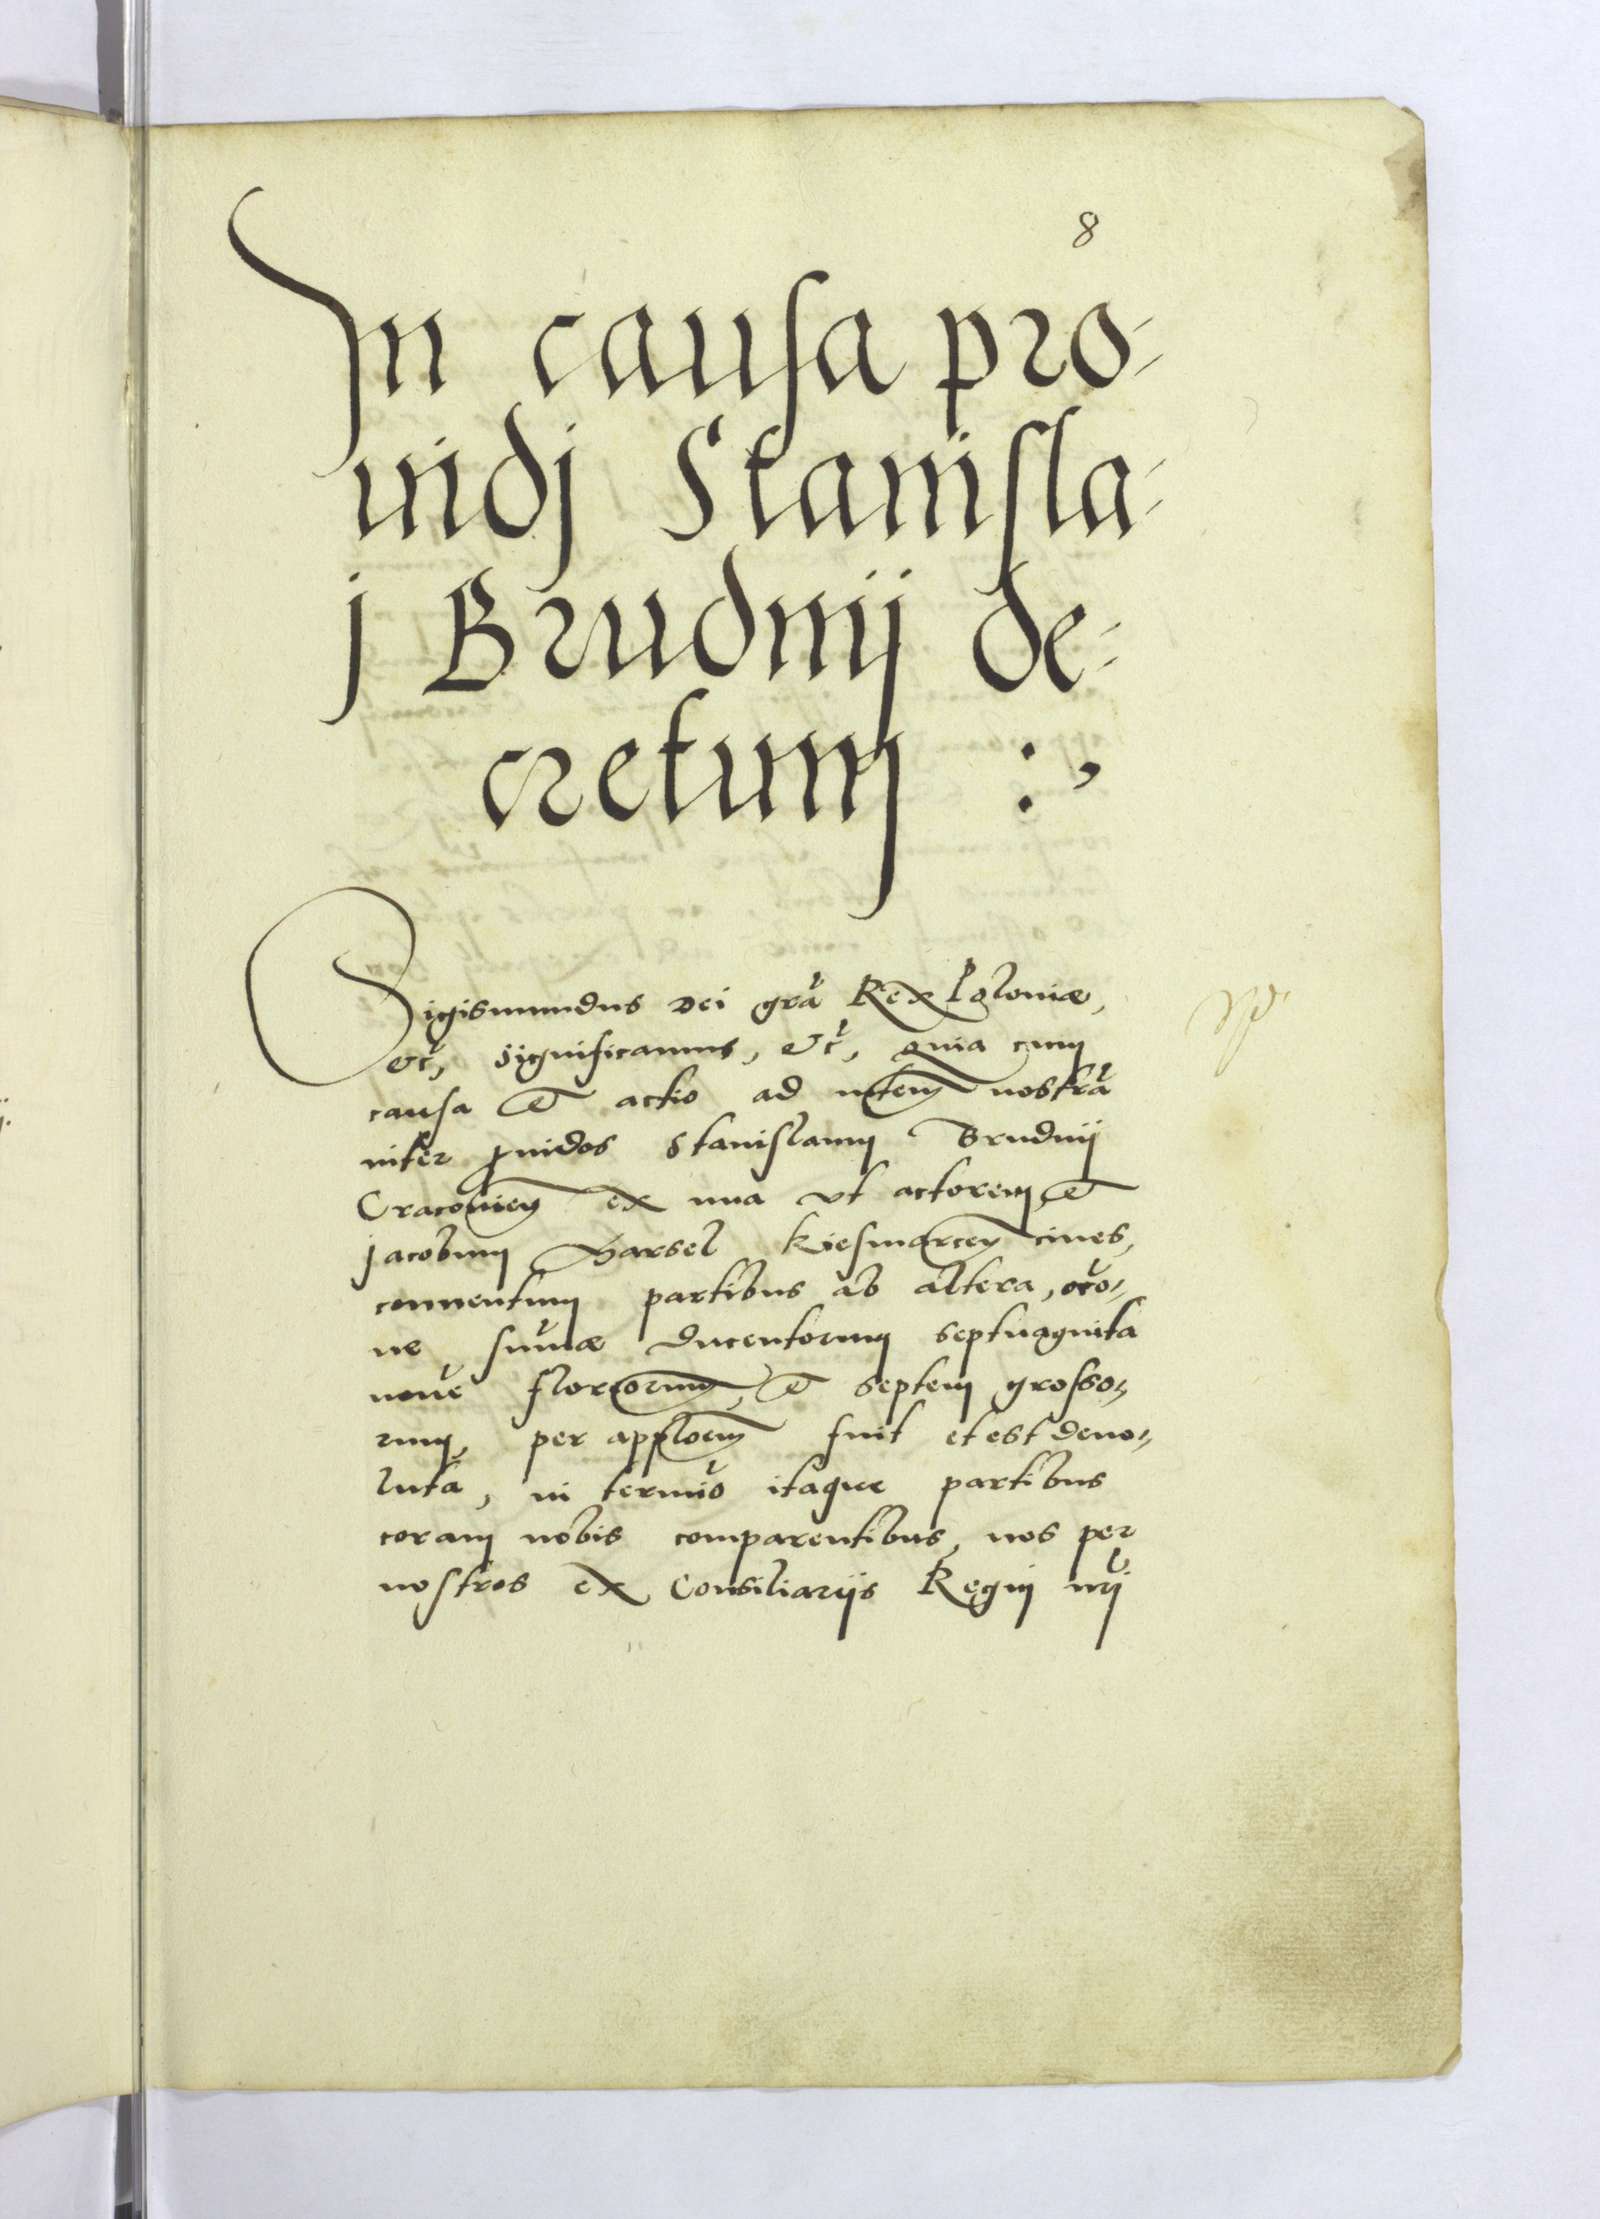 8
In causa pro-
uidj Stanisla-
j Brudnij de-
cretum :,
Sigismundus Dei gra Rex Poloniæ,
etc, significamus, etc, quia cum
causa et actio ad mtem nostra
inter prouidos Stanislaum Brudnij
Cracouien ex una vt actorem, et
Jacobum Harsel Kiesmarcen ciues,
conuentum partibus ab altera, occo-
ne summæ ducentorum septuaginta
noue florenorum, et septem grosso-
rum, per applloem fuit et est deuo-
luta, in termio itaque partibus
coram nobis comparentibus, nos per
nostros ex Consiliarijs Regni nri